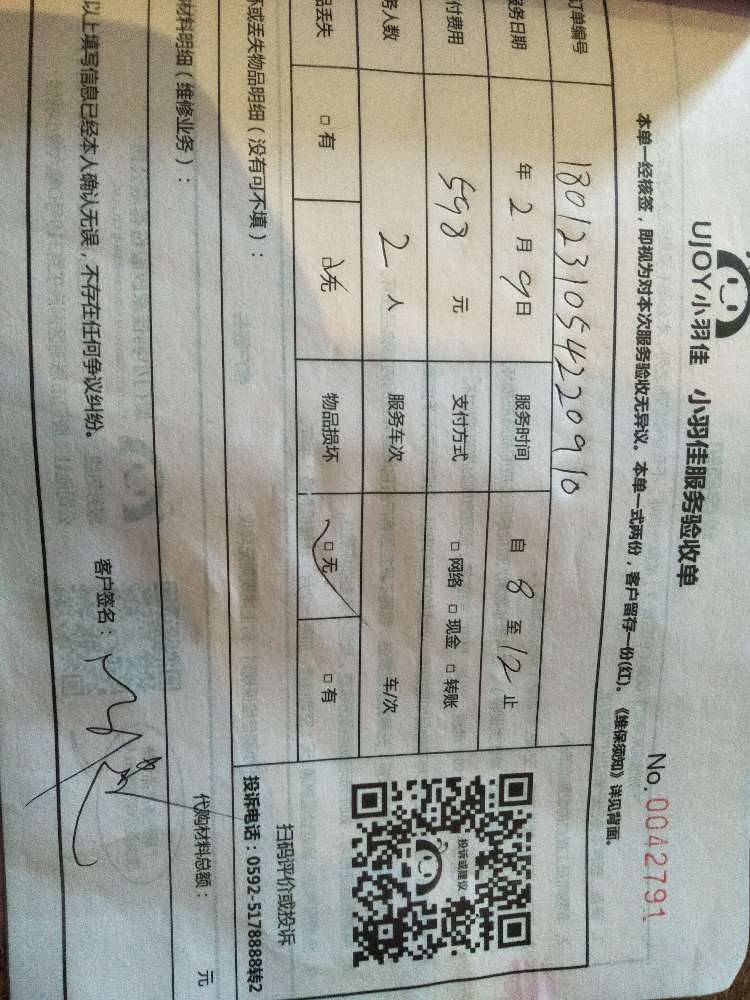 UJOY小羽佳 小羽佳服务验收单
No. 0042791
本单一经核签，即视为对本次服务验收无异议。本单一式两份，客户留存一份(红)。《维保须知》详见背面。
订单编号 180123105422090
服务日期 年 2 月 9 日 服务时间 自 8 至 12 止
付费用 598 元 支付方式 □ 网络 □ 现金 □ 转账
务人数 2 人 服务车次 车/次
品丢失 □ 有 □ 无 物品损坏 □ 无 □ 有
投诉或建议
扫码评价或投诉
投诉电话：0592-5178888转2
坏或丢失物品明细（没有可不填）：
材料明细（维修业务）：
代购材料总额： 元
以上填写信息已经本人确认无误，不存在任何争议纠纷。 客户签名：